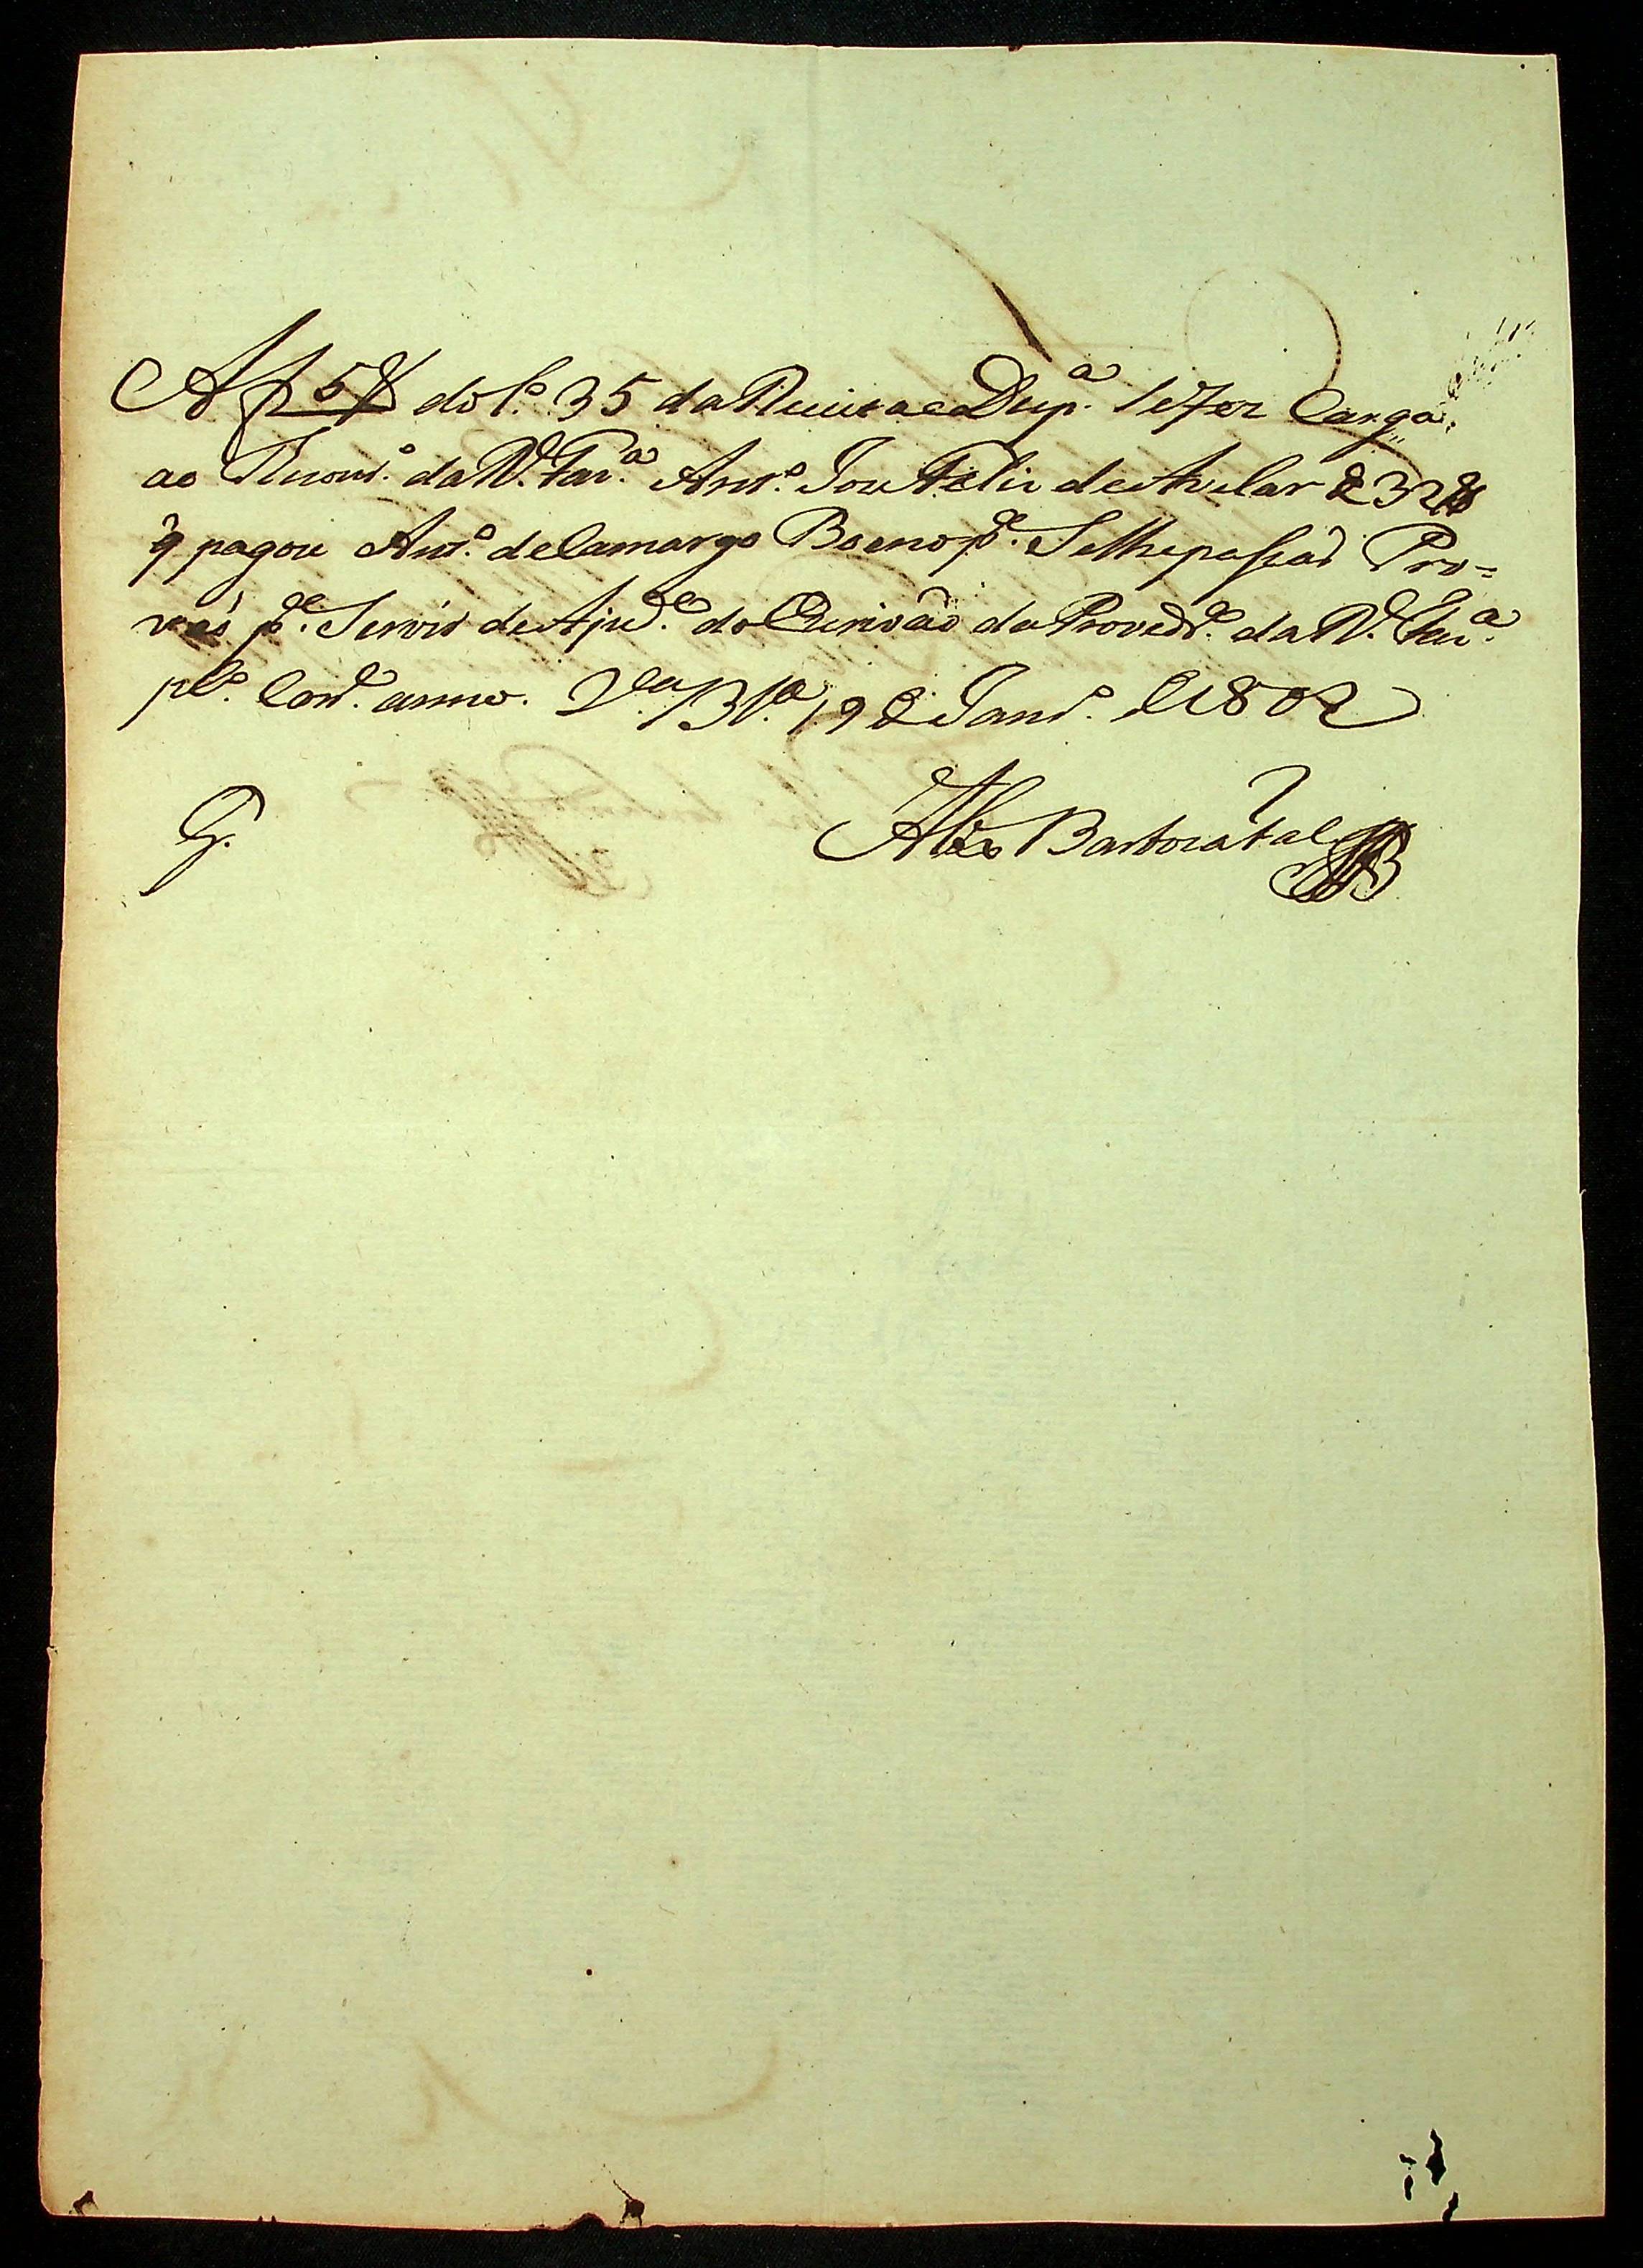 A f 58 do L.º 35 da Receita e Desp.ª se fez Carga
ao Thesour.º da R.l Faz.ª Ant.º Joze Felis de Avelar de 32$
q̃ pagou Ant.º de Camargo Bueno p.ª Se lhe passar Pro=
vaõ p.ª Servir de Ajud.e do Escrivaõ da Proved.ª da R.l Faz.ª
p.lo Corr.e anno. V.ª B.ª 19 de Janr.º de 1802
G.
Barboza